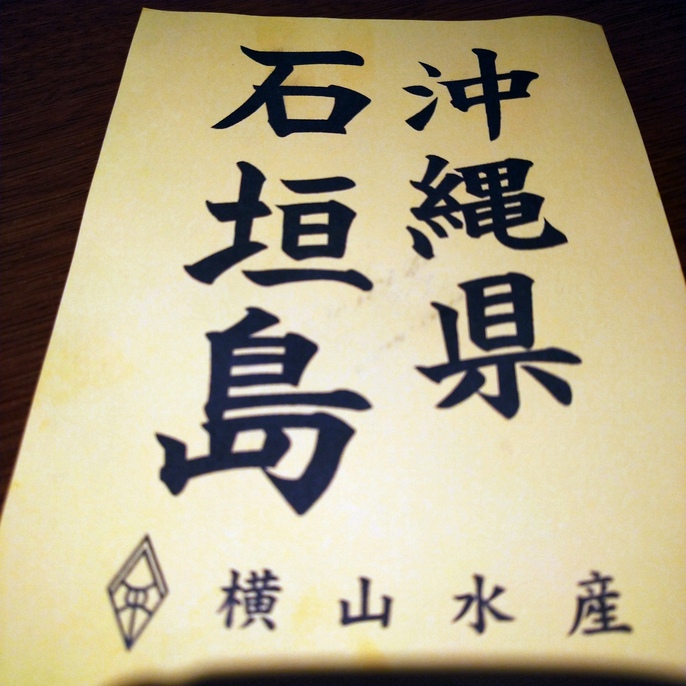 沖縄県
石垣島
横山水産